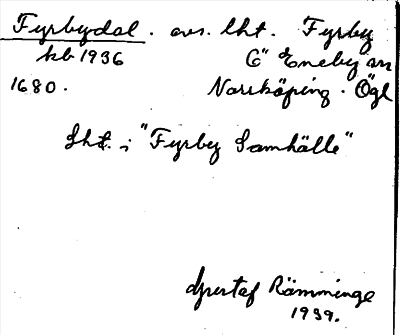 Fyrbydal. avs. lht. Fyrby
kb 1936 6" Eneby sn
1680. Norrköping. Ögl
Lht. i "Fyrby Samhälle"
Gustaf Rämminge
1939.